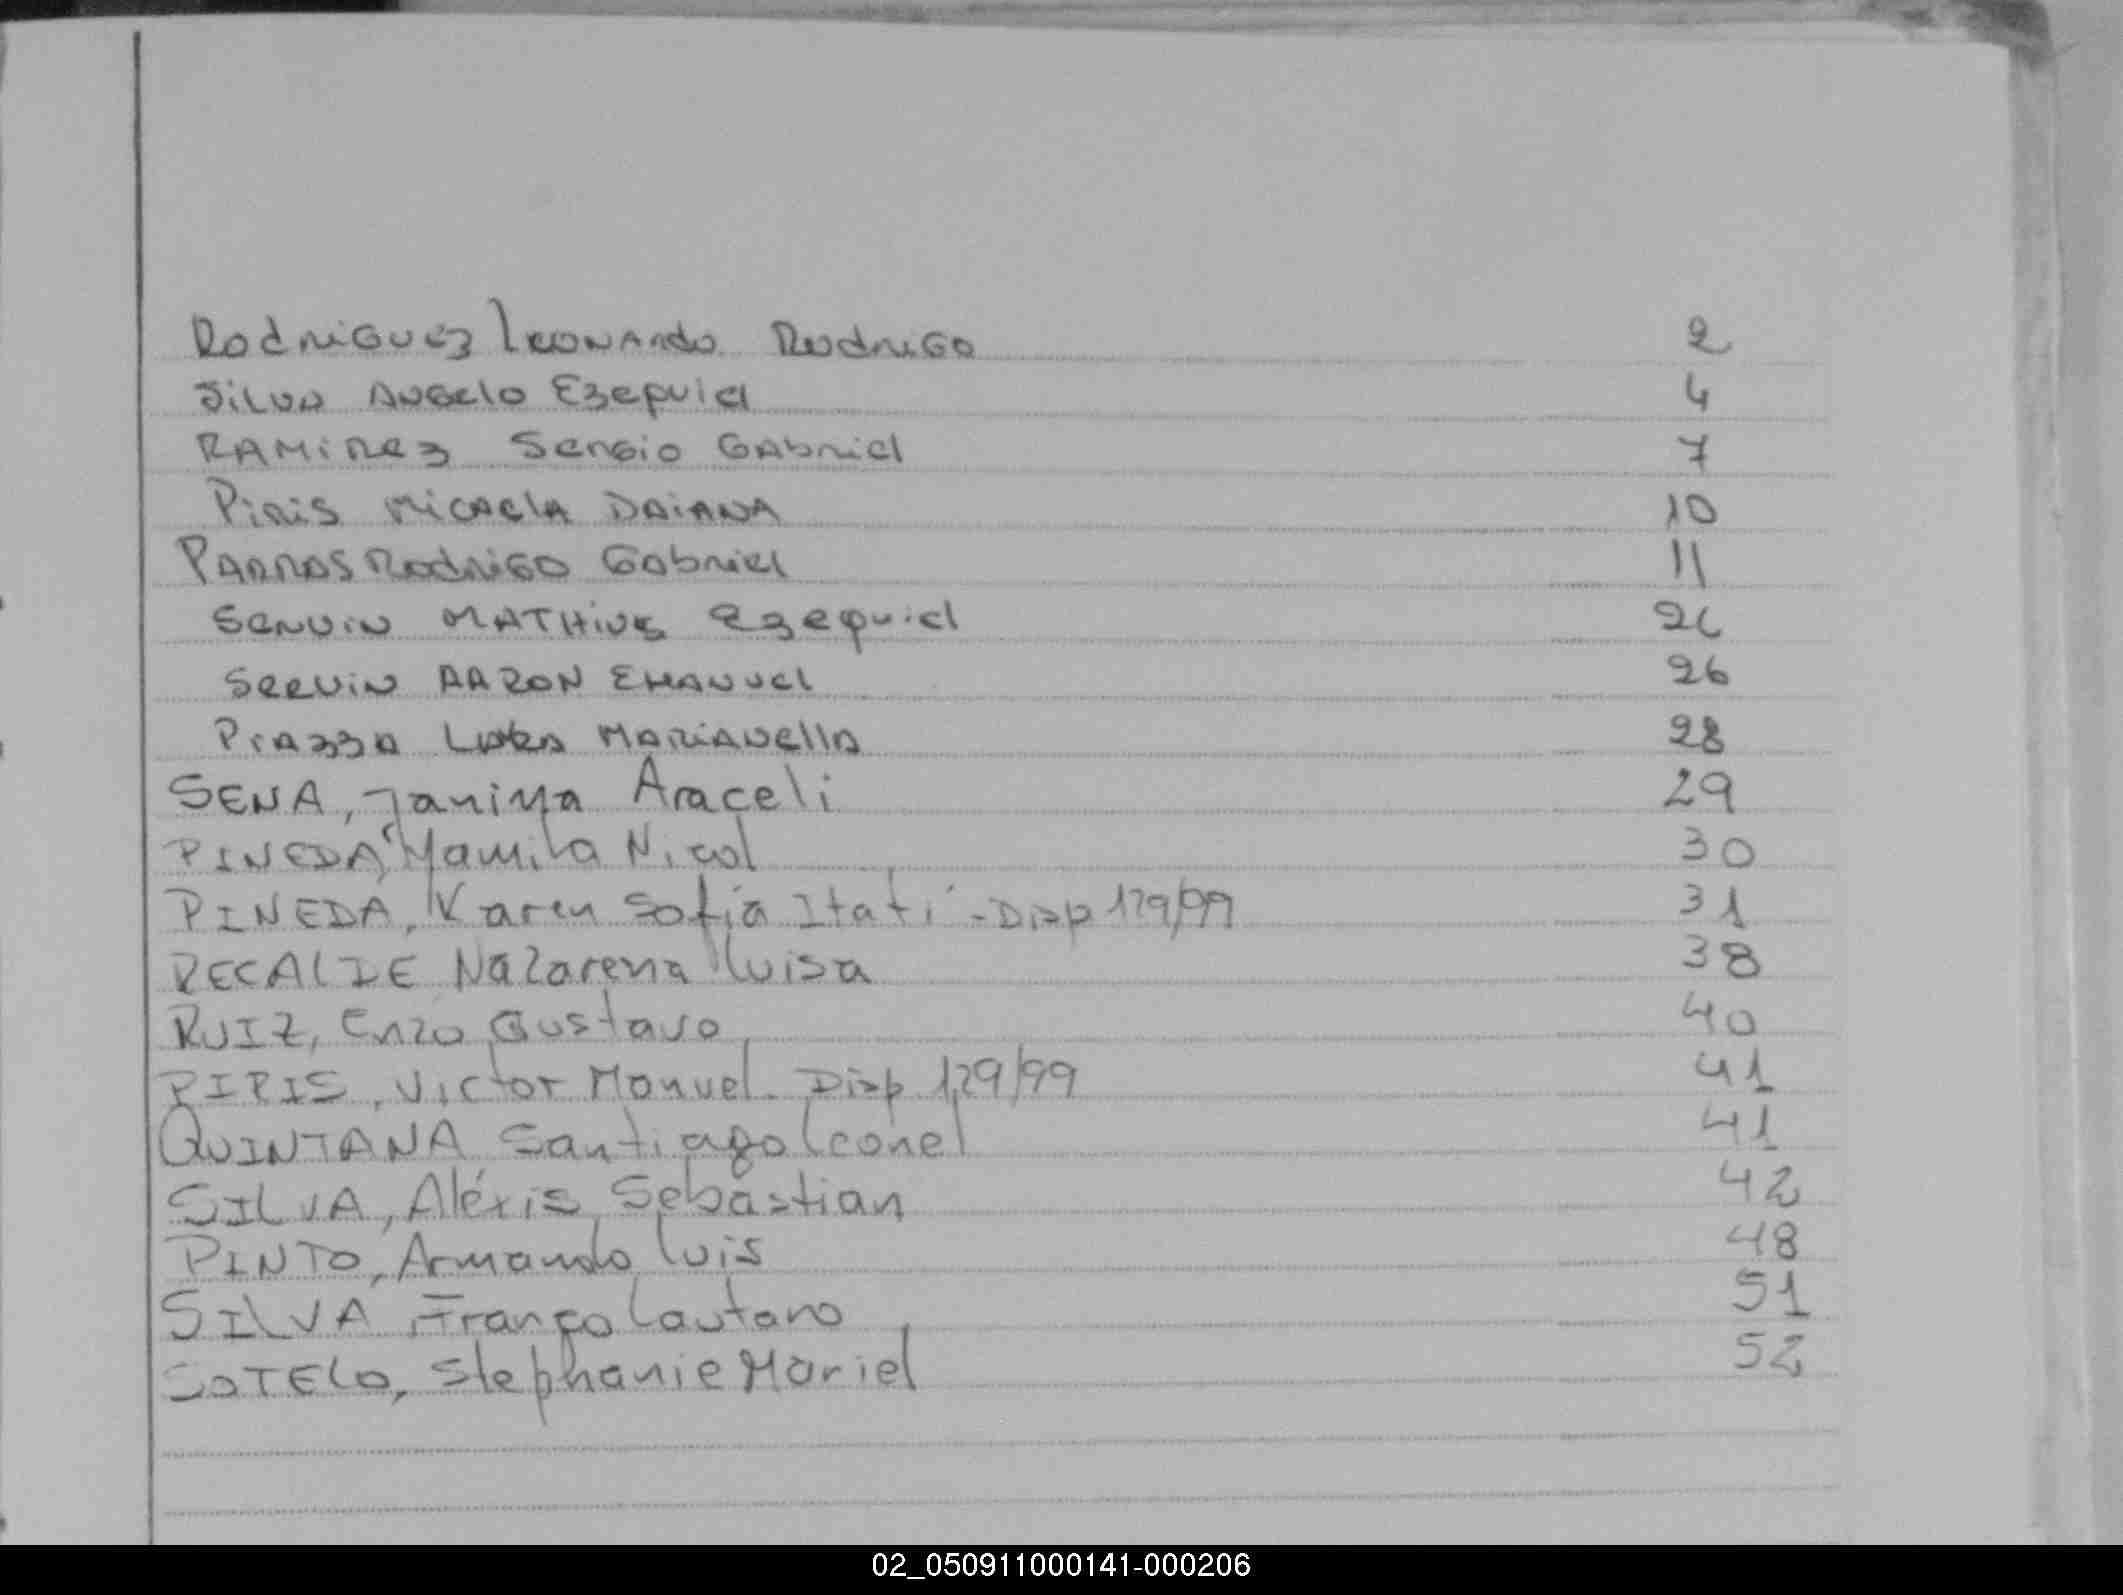 Rodriguez Leonardo Rodrigo 2
Silva Angelo Ezequiel 4
RAMIREZ Sergio Gabriel 7
Piris Micaela DAIANA 10
PARRAS Rodrigo Gabriel 11
Servin MATHIUS Ezequiel 26
Servin AARON EMANUEL 26
Piazza MARIANELLA 28
SENA, Janina Araceli 29
PINEDA, Yamila Nicol 30
PINEDA, Karen Sofía Itatí - Disp 129/99 31
RECALDE Nazarena Luisa 38
RUIZ, Enzo Gustavo 40
PIRIS, Victor Manuel. Disp 129/99 41
QUINTANA Santiago Leonel 41
SILVA, Aléxis Sebastian 42
PINTO, Armando Luis 48
SILVA Franco Lautaro 51
SOTELO, Stephanie Mariel 52
02_050911000141-000206